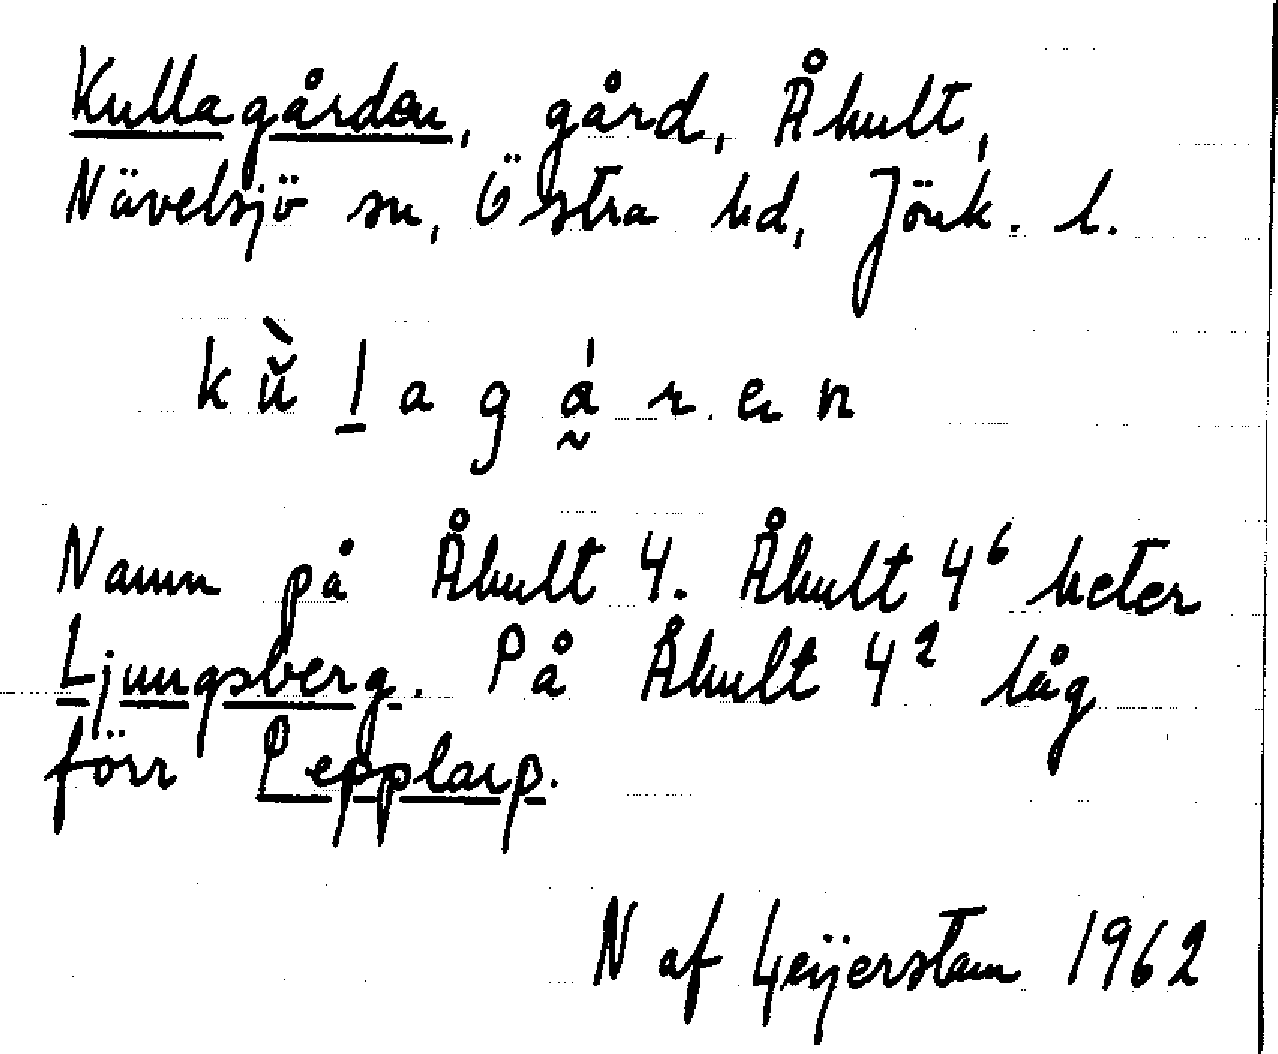 Kullagården, gård, Åhult,
Nävelsjö sn, Östra hd, Jönk. l.
kù̆l̲agá̰ren
Namn på Åhult 4. Åhult 4⁶ heter
Ljungsberg. På Åhult 4² låg
förr Pepplarp.
N af Geijerstam 1962